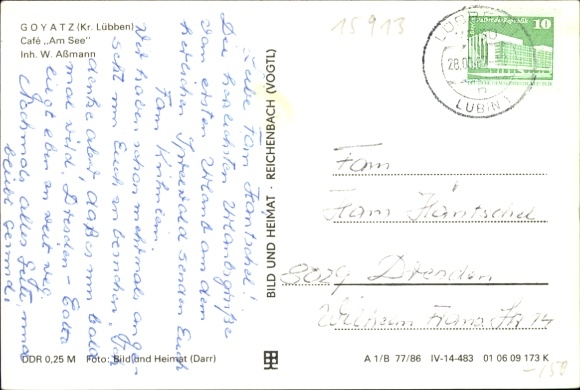 GOYATZ (Kr. Lübben)
Café „Am See"
Inh. W. Aßmann
15913
10
28.00
LUBIN 1
Liebe Fam. Häntschel!
Die herzlichsten Urlaubsgrüße
von ersten Urlaub an dem
herrlichen Spreewald senden Euch
Fam.
Wir haben schon mehrmals an
Euch zu besuchen. Ich
denke aber, daß es nun bald
mal wird. Dresden -
liegt eben zu weit weg.
Nochmals alles Gute und
bleibt gesund.
BILD UND HEIMAT · REICHENBACH (VOGTL)
Fam
Ham Häntschel
8029 Dresden
Wilhelm Franz Str 14
DDR 0,25 M Foto: Bild und Heimat (Darr)
A 1/B 77/86 IV-14-483 01 06 09 173 K
-150